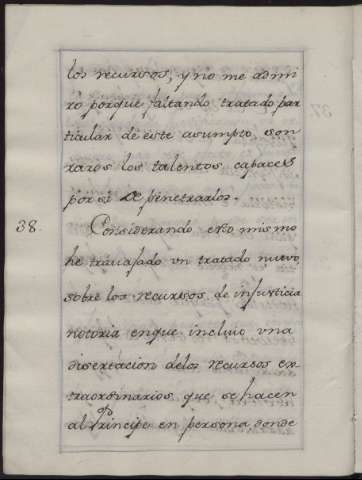 los recursos, y no me admi
ro porque faltando tratado par
ticular de este asumpto, son
raros los talentos capaces
por si de penetrarlos.
38. Considerando esto mismo
he travajado un tratado nuevo
sobre los recursos de injusticia
notoria enque incluio una
disertacion delos recursos ex-
traordinarios que se hacen
al Principe en persona donde